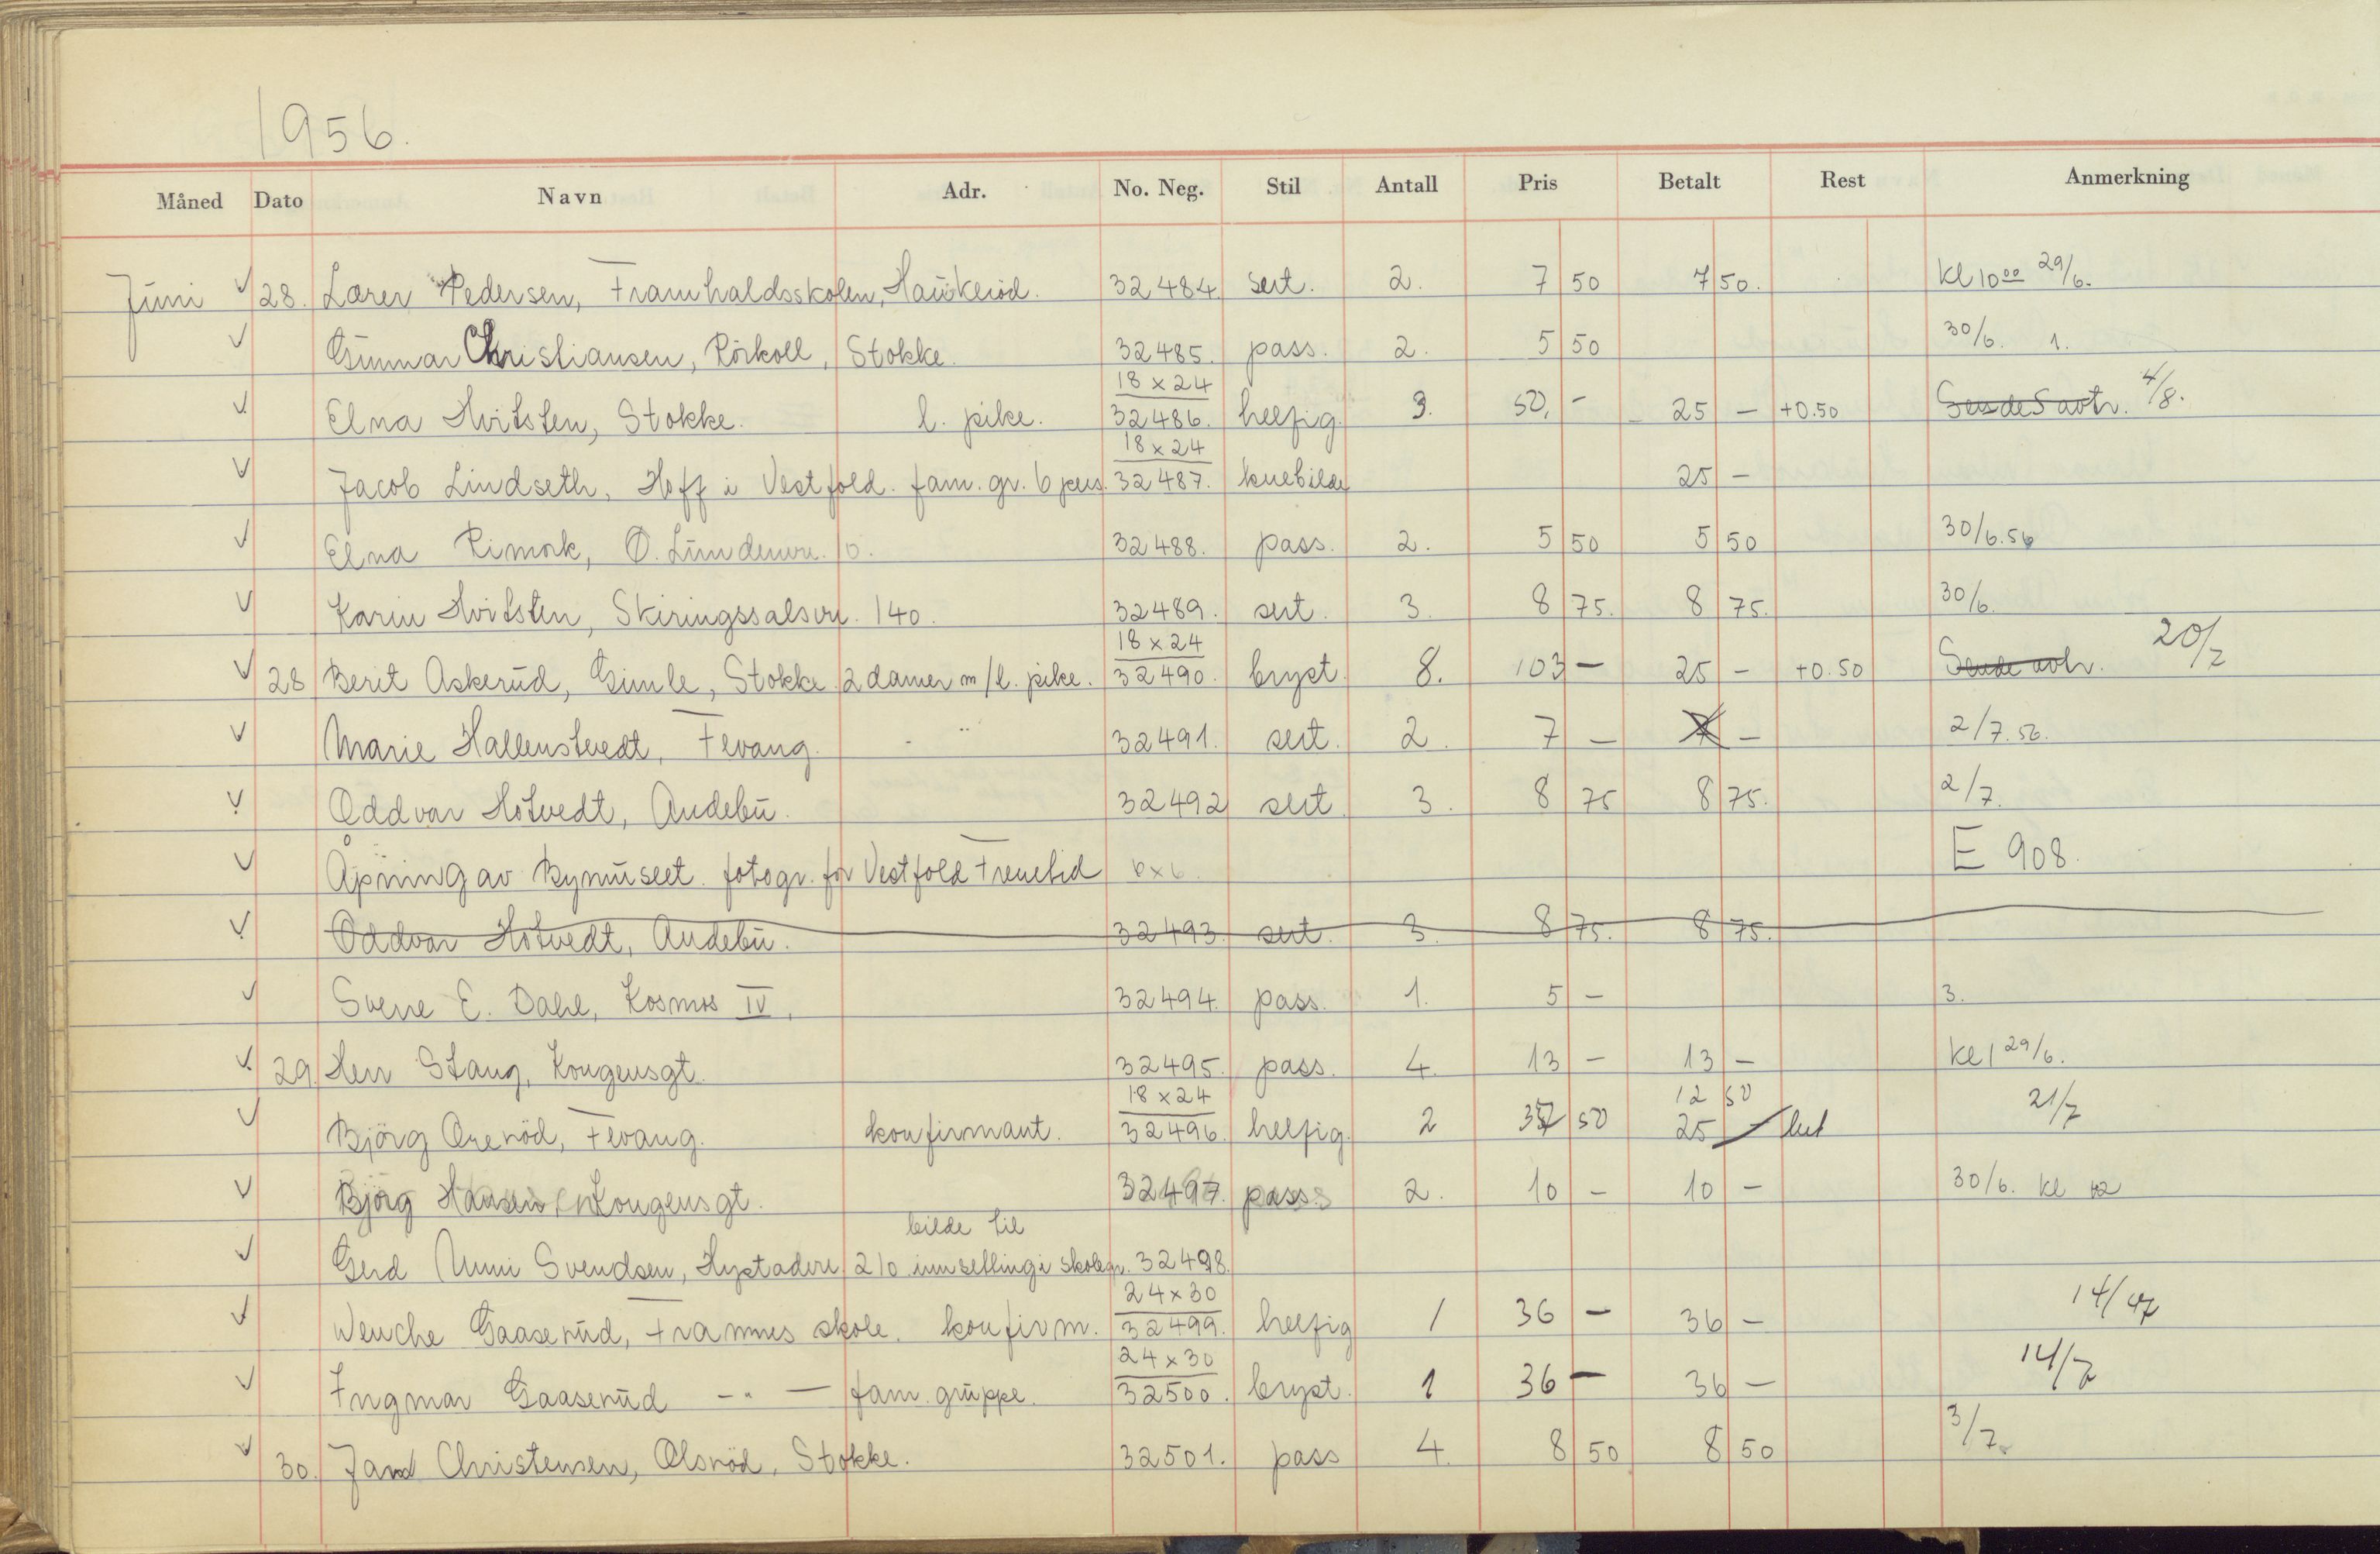 1956.
Måned Dato Navn Adr. No. Neg. Stil Antall Pris Betalt Rest Anmerkning
Juni √ 28. Lærer Pedersen, Framhaldsskolen, Haukeröd. 32484 sert. 2. 7 50 7 50. kl 10 00 29/6.
√ Gunnar Christiansen, Rörkoll, Stokke. 32485. pass. 2. 5 50 30/6. 1.
18 x 24
√ Elna Hvitsten, Stokke. l. pike. 32486. helfig. 3. 50,- 25 - +0.50 Sende Savtr. 4/8.
18 x 24
√ Jacob Lindseth, Hoff i Vestfold. fam. gr. 6 pers. 32487. knebilde 25 -
√ Elna Rimork, O. Lundewu. 10. 32488. pass. 2. 5 50 5 50 30/6.56
√ Karin Hvitsten, Skiringssalsvn. 140. 32489. sert. 3. 8 75. 8 75. 30/6.
18 x 24
√ 28 Berit Askerud, Gimle, Stokke. 2 damer m/l. pike. 32490. bryst. 8. 103 - 25 - +0.50 Sende avtr. 20/7
√ Marie Hallenstvedt, Fevang. - " 32491. sert. 2. 7 - 7 - 2/7.56.
√ Oddvar Hotvedt, Andebu. 32492 sert. 3. 8 75 8 75. 2/7.
√ Åpning av Bymuseet. fotogr. for Vestfold Fremtid 6x6. E 908.
√ Oddvar Hotvedt, Andebu. 32493. sert. 3. 8 75. 8 75.
√ Sverre E. Dahl, Kosmos IV, 32494. pass. 1. 5 - 3.
√ 29. Herr Stang, Kongensgt. 32495. pass. 4. 13 - 13 - kl 1 29/6.
18 x 24 12 50
√ Björg Arenöd, Fevang. konfirmant. 32496. helfig. 2 37 50 25 - bet 21/7
√ Björg Hansen, Kongensgt. 32497. pass 2. 10 - 10 - 30/6. kl 12
bilde til
√ Gerd Unni Svendsen, Hystadvn. 210 innselling i skolegr. 32498.
24 x 30
√ Wenche Gaaserud, Framnes skole. konfirm. 32499. helfig 1 36 - 36 - 14/7
24 x 30
√ Ingmar Gaaserud - " - fam. gruppe. 32500. bryst. 1 36 - 36 - 14/7
√ 30. Jan Christensen, Olsröd, Stokke. 32501. pass 4. 8 50 8 50 3/7.